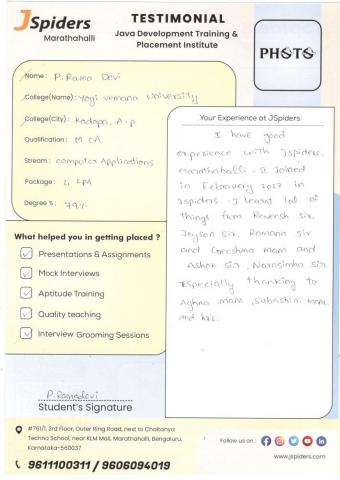 JSpiders
Marathahalli
TESTIMONIAL
Java Development Training &
Placement Institute
PHOTO
Name: P. Rama Devi
College(Name): Yogi vemana University
College(City): Kadapa, A.P
Qualification: M.CA
Stream: Computer Applications
Package: 4 LPA
Degree %: 79%
What helped you in getting placed ?
Presentations & Assignments
Mock Interviews
Aptitude Training
Quality teaching
Interview Grooming Sessions
Your Experience at JSpiders
I have good
experience with Jspiders.
Marathahalli. I Joined
in in
Jspiders. I learnt lot of
things from sir,
sir, Ramana sir
and mam and
Ashok sir, Narasimha sir
Especially thanking to
mam, mam
and
P. Ramadevi
Student's Signature
#761/1, 3rd Floor, Outer Ring Road, next to Chaitanya
Techno School, near KLM Mall, Marathahalli, Bengaluru,
Karnataka-560037
9611100311 / 9606094019
Follow us on :
www.jspiders.com